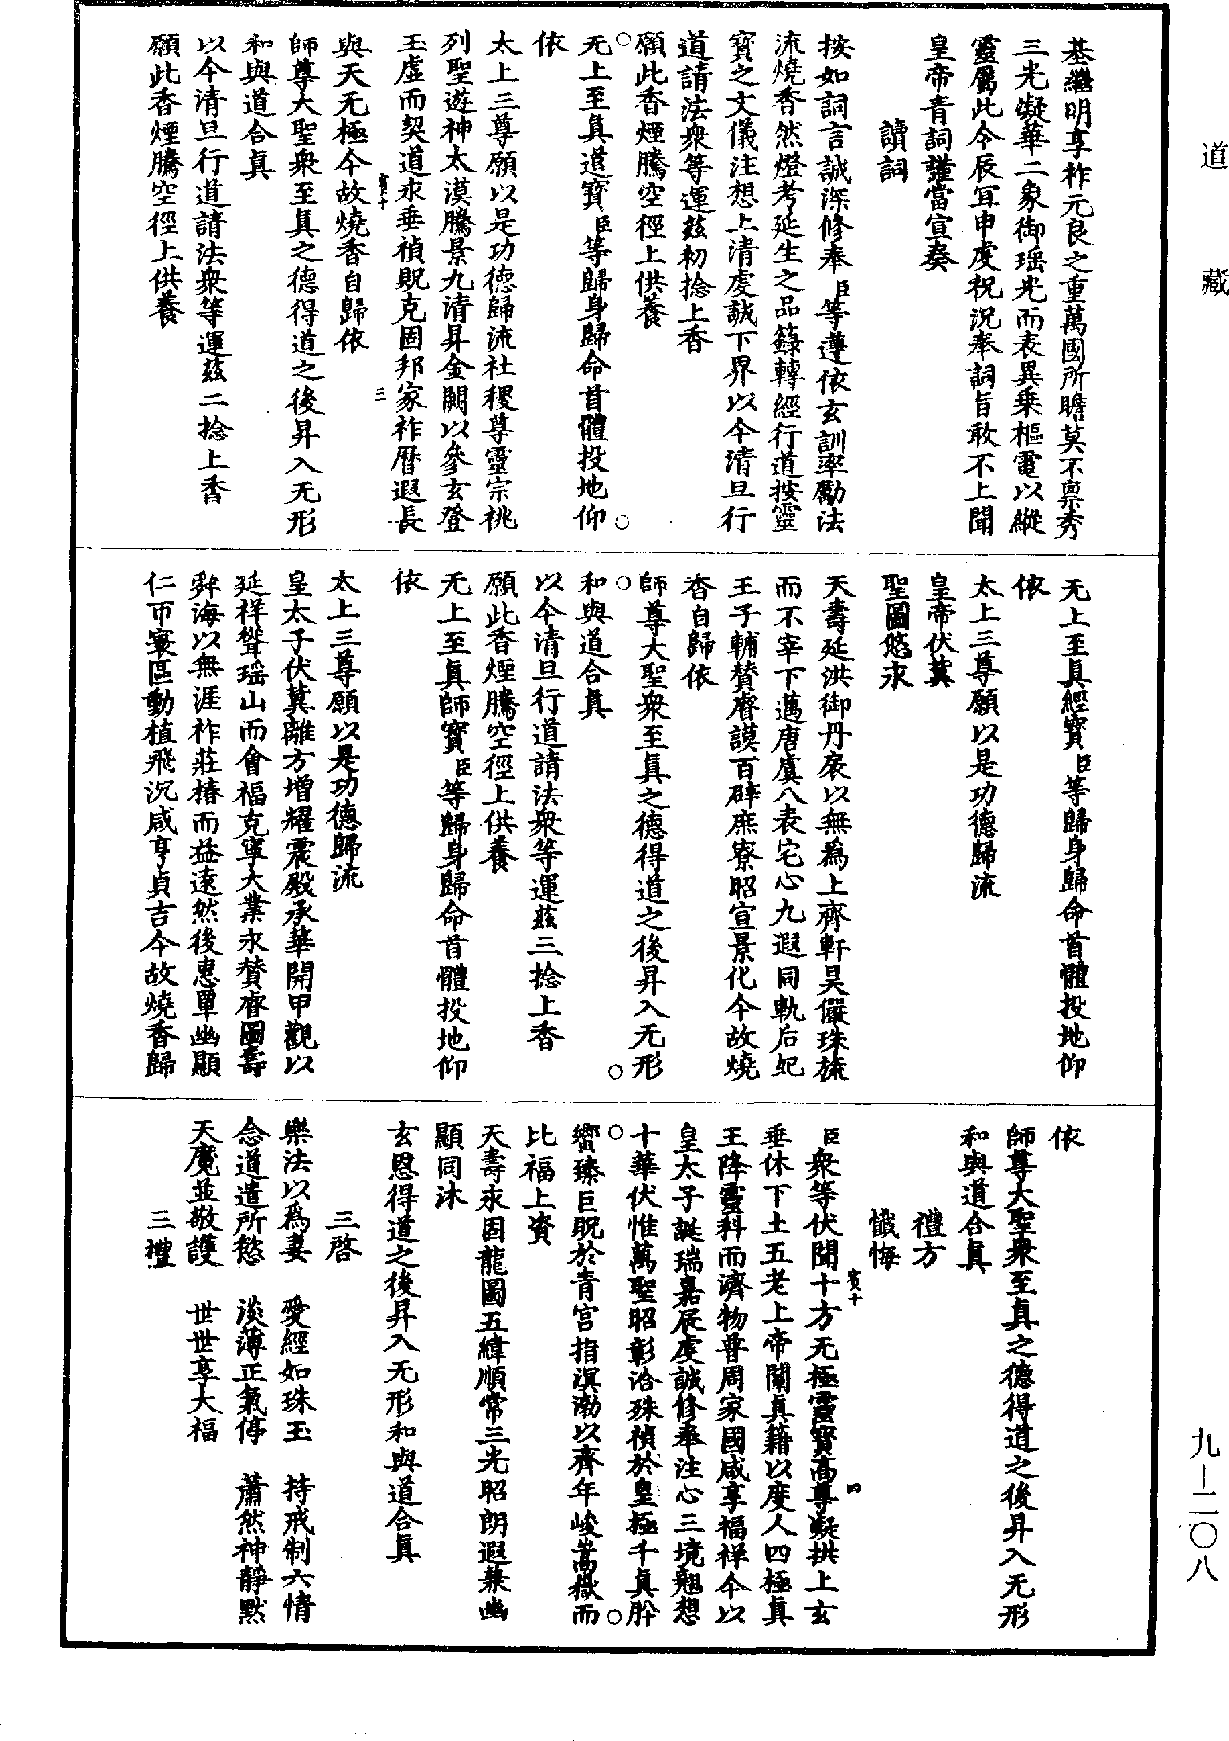 道藏
基繼明享祚元良之重萬國所瞻莫不禀秀
三光凝華二象御瑶光而表異乗樞電以縱
靈屬此今辰冝申虔祝況奉詞旨敢不上聞
皇帝青詞謹當宣奏
讀詞
按如詞言誠深修奉臣等遵依玄訓率勵法
流燒香然燈考延生之品籙轉經行道按靈
寳之文儀注想上清虔誠下界以今清旦行
道請法衆等運兹初捻上香
願此香煙騰空徑上供養
无上至真道寳臣等歸身歸命首體投地仰
依
太上三尊願以是功德歸流社稷尊靈宗祧
列聖遊神太漠騰景九清昇金闕以參玄登
玉虛而契道永垂禎貺克固邦家祚曆遐長
與天无極今故燒香自歸依
師尊大聖衆至真之德得道之後昇入无形
和與道合真
以今清旦行道請法衆等運兹二捻上香
願此香煙騰空徑上供養
无上至真經寳臣等歸身歸命首體投地仰
依
太上三尊願以是功德歸流
皇帝伏冀
聖圖悠永
天壽延洪御丹扆以無爲上齊軒昊儼珠旒
而不宰下邁唐虞八表宅心九遐同軌后妃
王子輔賛睿謨百辟庶寮昭宣景化今故燒
香自歸依
師尊大聖衆至真之德得道之後昇入无形
和與道合真
以今清旦行道請法衆等運兹三捻上香
願此香煙騰空徑上供養
无上至真師寳臣等歸身歸命首體投地仰
依
太上三尊願以是功德歸流
皇太子伏冀離方增耀震殿承華開甲觀以
延祥聳瑶山而會福克寧大業永賛睿圖壽
舜海以無涯祚莊椿而益遠然後惠單幽顯
仁帀寰區動植飛沉咸亨貞吉今故燒香歸
依
師尊大聖衆至真之德得道之後昇入无形
和與道合真
禮方
懺悔
臣衆等伏聞十方无極靈寳高尊凝拱上玄
垂休下土五老上帝闡真籍以度人四極真
王降靈科而濟物普周家國咸享福祥今以
皇太子誕瑞嘉辰虔誠修奉注心三境翹想
十華伏惟萬聖昭彰洽殊禎於皇極千真肸
蠁臻巨貺於青宫指溟渤以齊年峻嵩嶽而
比福上資
天壽永固龍圖五緯順常三光昭朗遐兼幽
顯同沐
玄恩得道之後昇入无形和與道合真
三啓
樂法以爲妻　愛經如珠玉　持戒制六情
念道遣所慾　淡薄正氣停　蕭然神靜默
天魔並敬護　世世享大福
三禮
九-二〇八